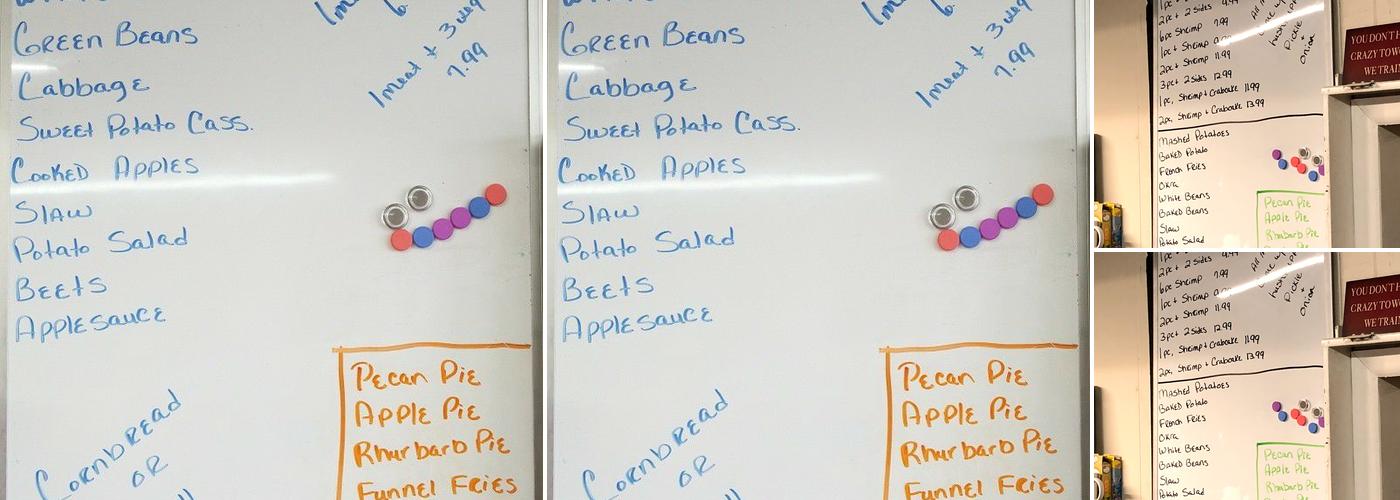 GREEN BEANS
Cabbage
SWEET POTATO CASS.
COOKED APPLES
SLAW
POTATO SALAD
BEETS
APPLESAUCE
1 meat & 3 veg
7.99
CORNBREAD
OR
PECAN PIE
APPLE PIE
Rhurbarb PIE
FUNNEL FRIES
GREEN BEANS
Cabbage
SWEET POTATO CASS.
COOKED APPLES
SLAW
POTATO SALAD
BEETS
APPLESAUCE
1 meat & 3 veg
7.99
CORNBREAD
OR
PECAN PIE
APPLE PIE
Rhurbarb PIE
FUNNEL FRIES
2pc + 2 Sides
6pc Shrimp 7.99
1pc + Shrimp
2pc + Shrimp 11.99
3pc + 2 Sides 12.99
1pc, Shrimp + Crabcake 11.99
2pc, Shrimp + Crabcake 13.99
MASHED POTATOES
BAKED POTATO
FRENCH FRIES
OKRA
WHITE BEANS
BAKED BEANS
SLAW
POTATO SALAD
Pickle
+
onion
PECAN PIE
APPLE PIE
Rhubarb PIE
YOU DON'T H
CRAZY TO W
WE TRAI
2pc + 2 Sides
6pc Shrimp 7.99
1pc + Shrimp
2pc + Shrimp 11.99
3pc + 2 Sides 12.99
1pc, Shrimp + Crabcake 11.99
2pc, Shrimp + Crabcake 13.99
MASHED POTATOES
BAKED POTATO
FRENCH FRIES
OKRA
WHITE BEANS
BAKED BEANS
SLAW
POTATO SALAD
Pickle
+
onion
PECAN PIE
APPLE PIE
Rhubarb PIE
YOU DON'T H
CRAZY TO W
WE TRAI